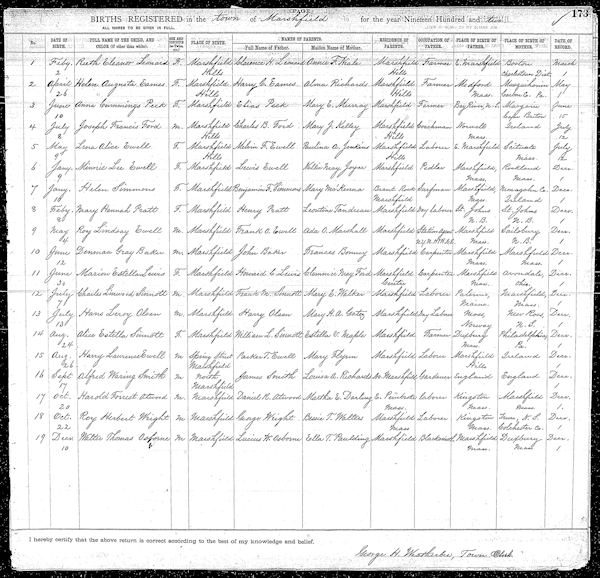 (PAGE) 173
BIRTHS REGISTERED in the town of Marshfield for the year Nineteen Hundred and
ALL NAMES TO BE GIVEN IN FULL.
No. DATE OF BIRTH. FULL NAME OF THE CHILD, AND COLOR (if other than white). SEX AND CONDITION (as Twins, etc.) PLACE OF BIRTH. NAMES OF PARENTS. Full Name of Father. Maiden Name of Mother. RESIDENCE OF PARENTS. OCCUPATION OF FATHER. PLACE OF BIRTH OF FATHER. PLACE OF BIRTH OF MOTHER. DATE OF RECORD.
1 Feby. 2 Ruth Eleanor Leonard F. Marshfield Hills Clarence H. Leonard Annie F. Marshfield Hills Farmer E. Marshfield Boston Charlestown Dist. March 1
2 April 26 Helen Augusta Eames F. Marshfield Hills Harry C. Eames Alma Richards Marshfield Hills Farmer Medford Mass. May 1
3 June 10 Anna Cummings Peck F. Marshfield Elias Peck Mary E. Murray Marshfield Farmer June 15
4 July 8 Joseph Francis Ford m. Marshfield Hills Charles B. Ford Mary J. Kelley Marshfield Hills Coachman Norwell Mass. Ireland July 12
5 May 9 Lena Alice Ewell F. Marshfield Hills Melvin F. Ewell Pauline A. Jenkins Marshfield Hills Laborer E. Marshfield Scituate Mass. July 12
6 Jany. 9 Minnie Lee Ewell F. Marshfield Lewis Ewell Joyce Marshfield Pedler Marshfield, Mass. Rockland Mass. Dec. 1
7 Jany. 10 Helen Simmons F. Marshfield Benjamin F. Simmons Mary McKenna Brant Rock Marshfield Surfman Marshfield, Mass. Ireland Dec. 1
8 Feby. 8 Mary Hannah Pratt F. Marshfield Henry Pratt Marshfield Laborer St. Johns N.B. St. Johns N.B. Dec. 1
9 May 4 Roy Lindsay Ewell m Marshfield Frank A. Ewell Ada A. Marshall Marshfield Marshfield Mass. Salisbury N.B. Dec. 1
10 June 12 Denman Gray Baker m. Marshfield John Baker Frances Bonney Marshfield Carpenter Marshfield Mass. Marshfield Mass. Dec. 1
11 June 30 Marion Estella Lewis F. Marshfield Howard E. Lewis Clemmie May Ford Marshfield Center Carpenter Marshfield Mass. Avondale, Ohio. Dec. 1
12 July 7 Charles Sinnott m Marshfield Frank W. Sinnott Mary E. Walker Marshfield Laborer Palermo, Maine Marshfield, Mass. Dec. 1
13 July 13 Hans Leroy Olsen m. Marshfield Harry Olsen Mary H. A. Marshfield Laborer Moss, Norway New Ross, N.S. Dec. 1
14 Aug. 24 Alice Estella Sinnott F. Marshfield William L. Sinnott Estella V. Maple Marshfield Farmer Duxbury Mass. Philadelphia, Pa. Dec. 1
15 Aug. 26 Harry Lawrence Ewell m Spring Street Marshfield Parker T. Ewell Mary Flynn Marshfield Laborer Marshfield Hills Ireland Dec. 1
16 Sept. 17 Alfred Waring Smith m North Marshfield James Smith Louisa A. Richards No. Marshfield Gardener England England Dec. 1
17 Oct. 20 Harold Forrest Atwood m. Marshfield Daniel R. Atwood Martha E. Darling E. Pembroke Mass. Laborer Kingston Mass. Marshfield Mass. Dec. 1
18 Oct. 22 Roy Herbert Wright m. Marshfield George Wright Bessie T. Walters Marshfield Mass Laborer Kingston Mass. Truro, N.S. Colchester Co. Dec. 1
19 Dec. 10 Thomas Osborne m Marshfield Lucius W. Osborne Ella T. Paulding Marshfield Blacksmith Marshfield Mass. Duxbury Mass. Dec. 1
I hereby certify that the above return is correct according to the best of my knowledge and belief.
George H. Weatherbee, Town Clerk